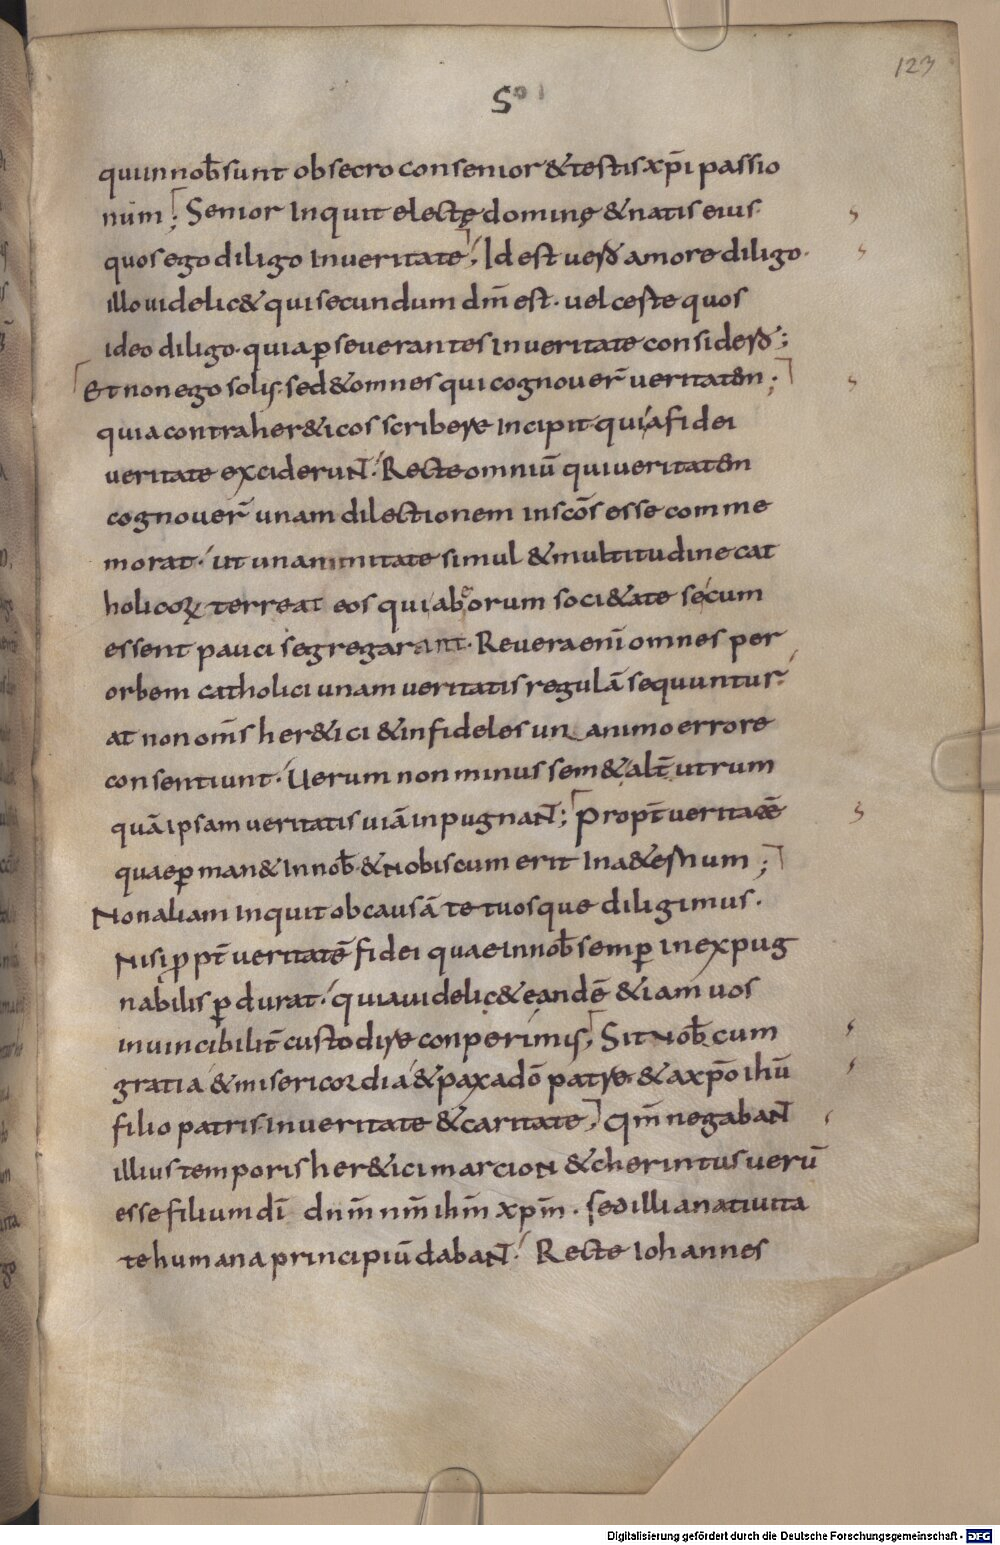 123
S°
qui in nob̄ sunt obsecro consenior & testis xp̄i passio
num; Senior Inquit electę dominę & natis eius
quos ego diligo In veritate; Id est vero amore diligo.
illo videlic& qui secundum dm̄ est. vel ceste quos
ideo diligo. quia p̄severantes In veritate considero;
Et non ego solus. sed & omnes qui cognover̄ veritatem;
quia contra her&icos scribere Incipit qui a fidei
veritate exciderunt. Recte omniū qui veritatem
cognover̄ unam dilectionem in sc̄os esse comme
morat. ut unanimitate simul & multitudine cat
holicoꝝ terreat eos qui ab eorum soci&ate secum
essent pauci segregarant. Revera enī omnes per
orbem catholici unam veritatis regulā sequuntur.
at non om̄s her&ici & infideles un animo errore
consentiunt. Uerum non minus sem& alt̄utrum
quā ipsam veritatis viā inpugnant; Propt̄ veritatē
quae p̄man& In nob̄. & Nobiscum erit In a&ernum;
Non aliam Inquit ob causā te tuosque diligimus.
Nisi ꝓpt̄ veritatē fidei quae In nob̄ semp̄ inexpug
nabilis p̄durat. quia videlic& eandē &iam vos
invincibilit̄ custodire conperimus; Sit Nob̄cum
gratia & misericordia & pax a dō patre & a xp̄o ihū
filio patris. in veritate & caritate; Qm̄ negabant
illius temporis her&ici marcioN & cherintus verū
esse filium dī dnm̄ nm̄ ihm̄ xpm̄. sed illi a nativita
te humana principiū dabant. Recte Iohannes
Digitalisierung gefördert durch die Deutsche Forschungsgemeinschaft - DFG